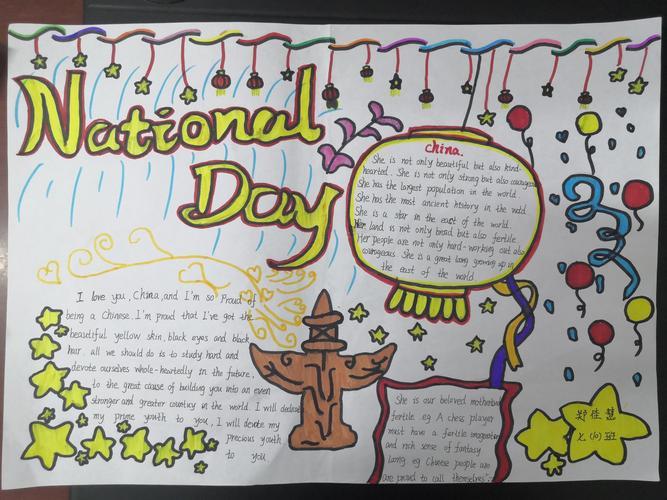 National
Day
China
She is not only beautiful but also kind-
hearted. She is not only strong but also courageous
She has the largest population in the world.
She has the most ancient history in the
She is a star in the east of the world.
Her land is not only broad but also fertile
Her people are not only hard-working but also
courageous She is a great long growing up in
the east of the world
I love you, China, and I'm so Proud of
being a Chinese. I'm proud that I've got the
beautiful yellow skin, black eyes and black
hair. all we should do is to study hard and
devote ourselves whole-heartedly in the future.
to the great cause of building you into an even
stronger and greater country in the world. I will dedicate
my prime youth to you, I will devote my
precious youth
to you
She is our beloved
fertile eg A chess player
must have a fertile
and rich sense of fantasy
Loong eg Chinese people are
are proud to call themselves
郑佳慧
七(10)班